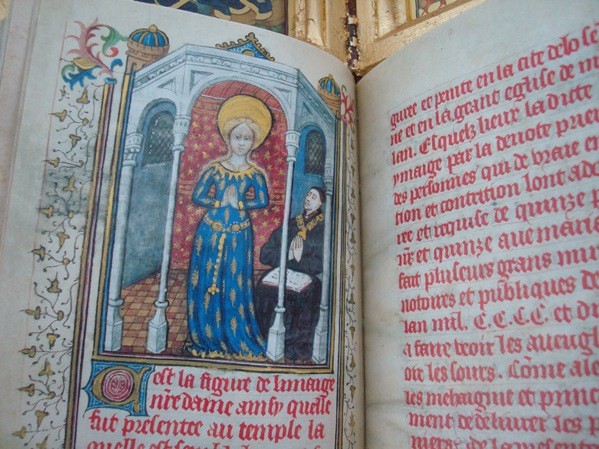 est la figure de limaige
nre dame ainsy quelle
fut presentee au temple la
quelle est
guree et painte en la cite de
ne et en la grant eglise de m
lan. Esquelz lieux la dicte
ymaige par la deuote prie
des personnes qui de vraie en
tion et contrition lont ade
ree et requise de quinze p
nr̄s et quinze aue maria
fait pluseurs grans mir
notoires et publiques de
lan mil. C.C.C.C. et
a faire veoir les aueugl
oir les sours. Cōme ale
les mehaignie et prince
ment de deliurer les p
de la presente